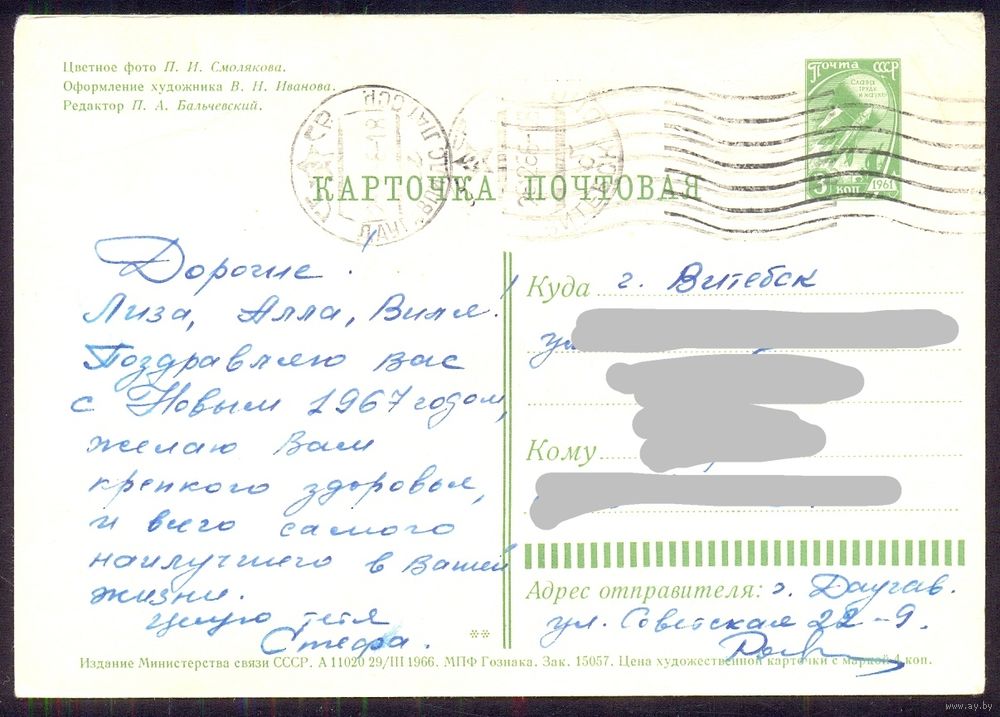 Цветное фото П. И. Смолякова.
Оформление художника В. Н. Иванова.
Редактор П. А. Бальчевский.
Почта СССР
Слава труду и науке
3 коп
1961
КАРТОЧКА ПОЧТОВАЯ
Дорогие!
Лиза, Алла, Виля!
Поздравляю вас
с Новым 1967 годом,
желаю Вам
крепкого здоровья,
и всего самого
наилучшего в Вашей
жизни.
Целую тётя
Стефа.
Куда г. Витебск
ул.
Кому
Адрес отправителя: г. Даугав.
ул. Советская 22-9.
**
Издание Министерства связи СССР. А 11020 29/III 1966. МПФ Гознака. Зак. 15057. Цена художественной карточки с маркой 4 коп.
www.ay.by